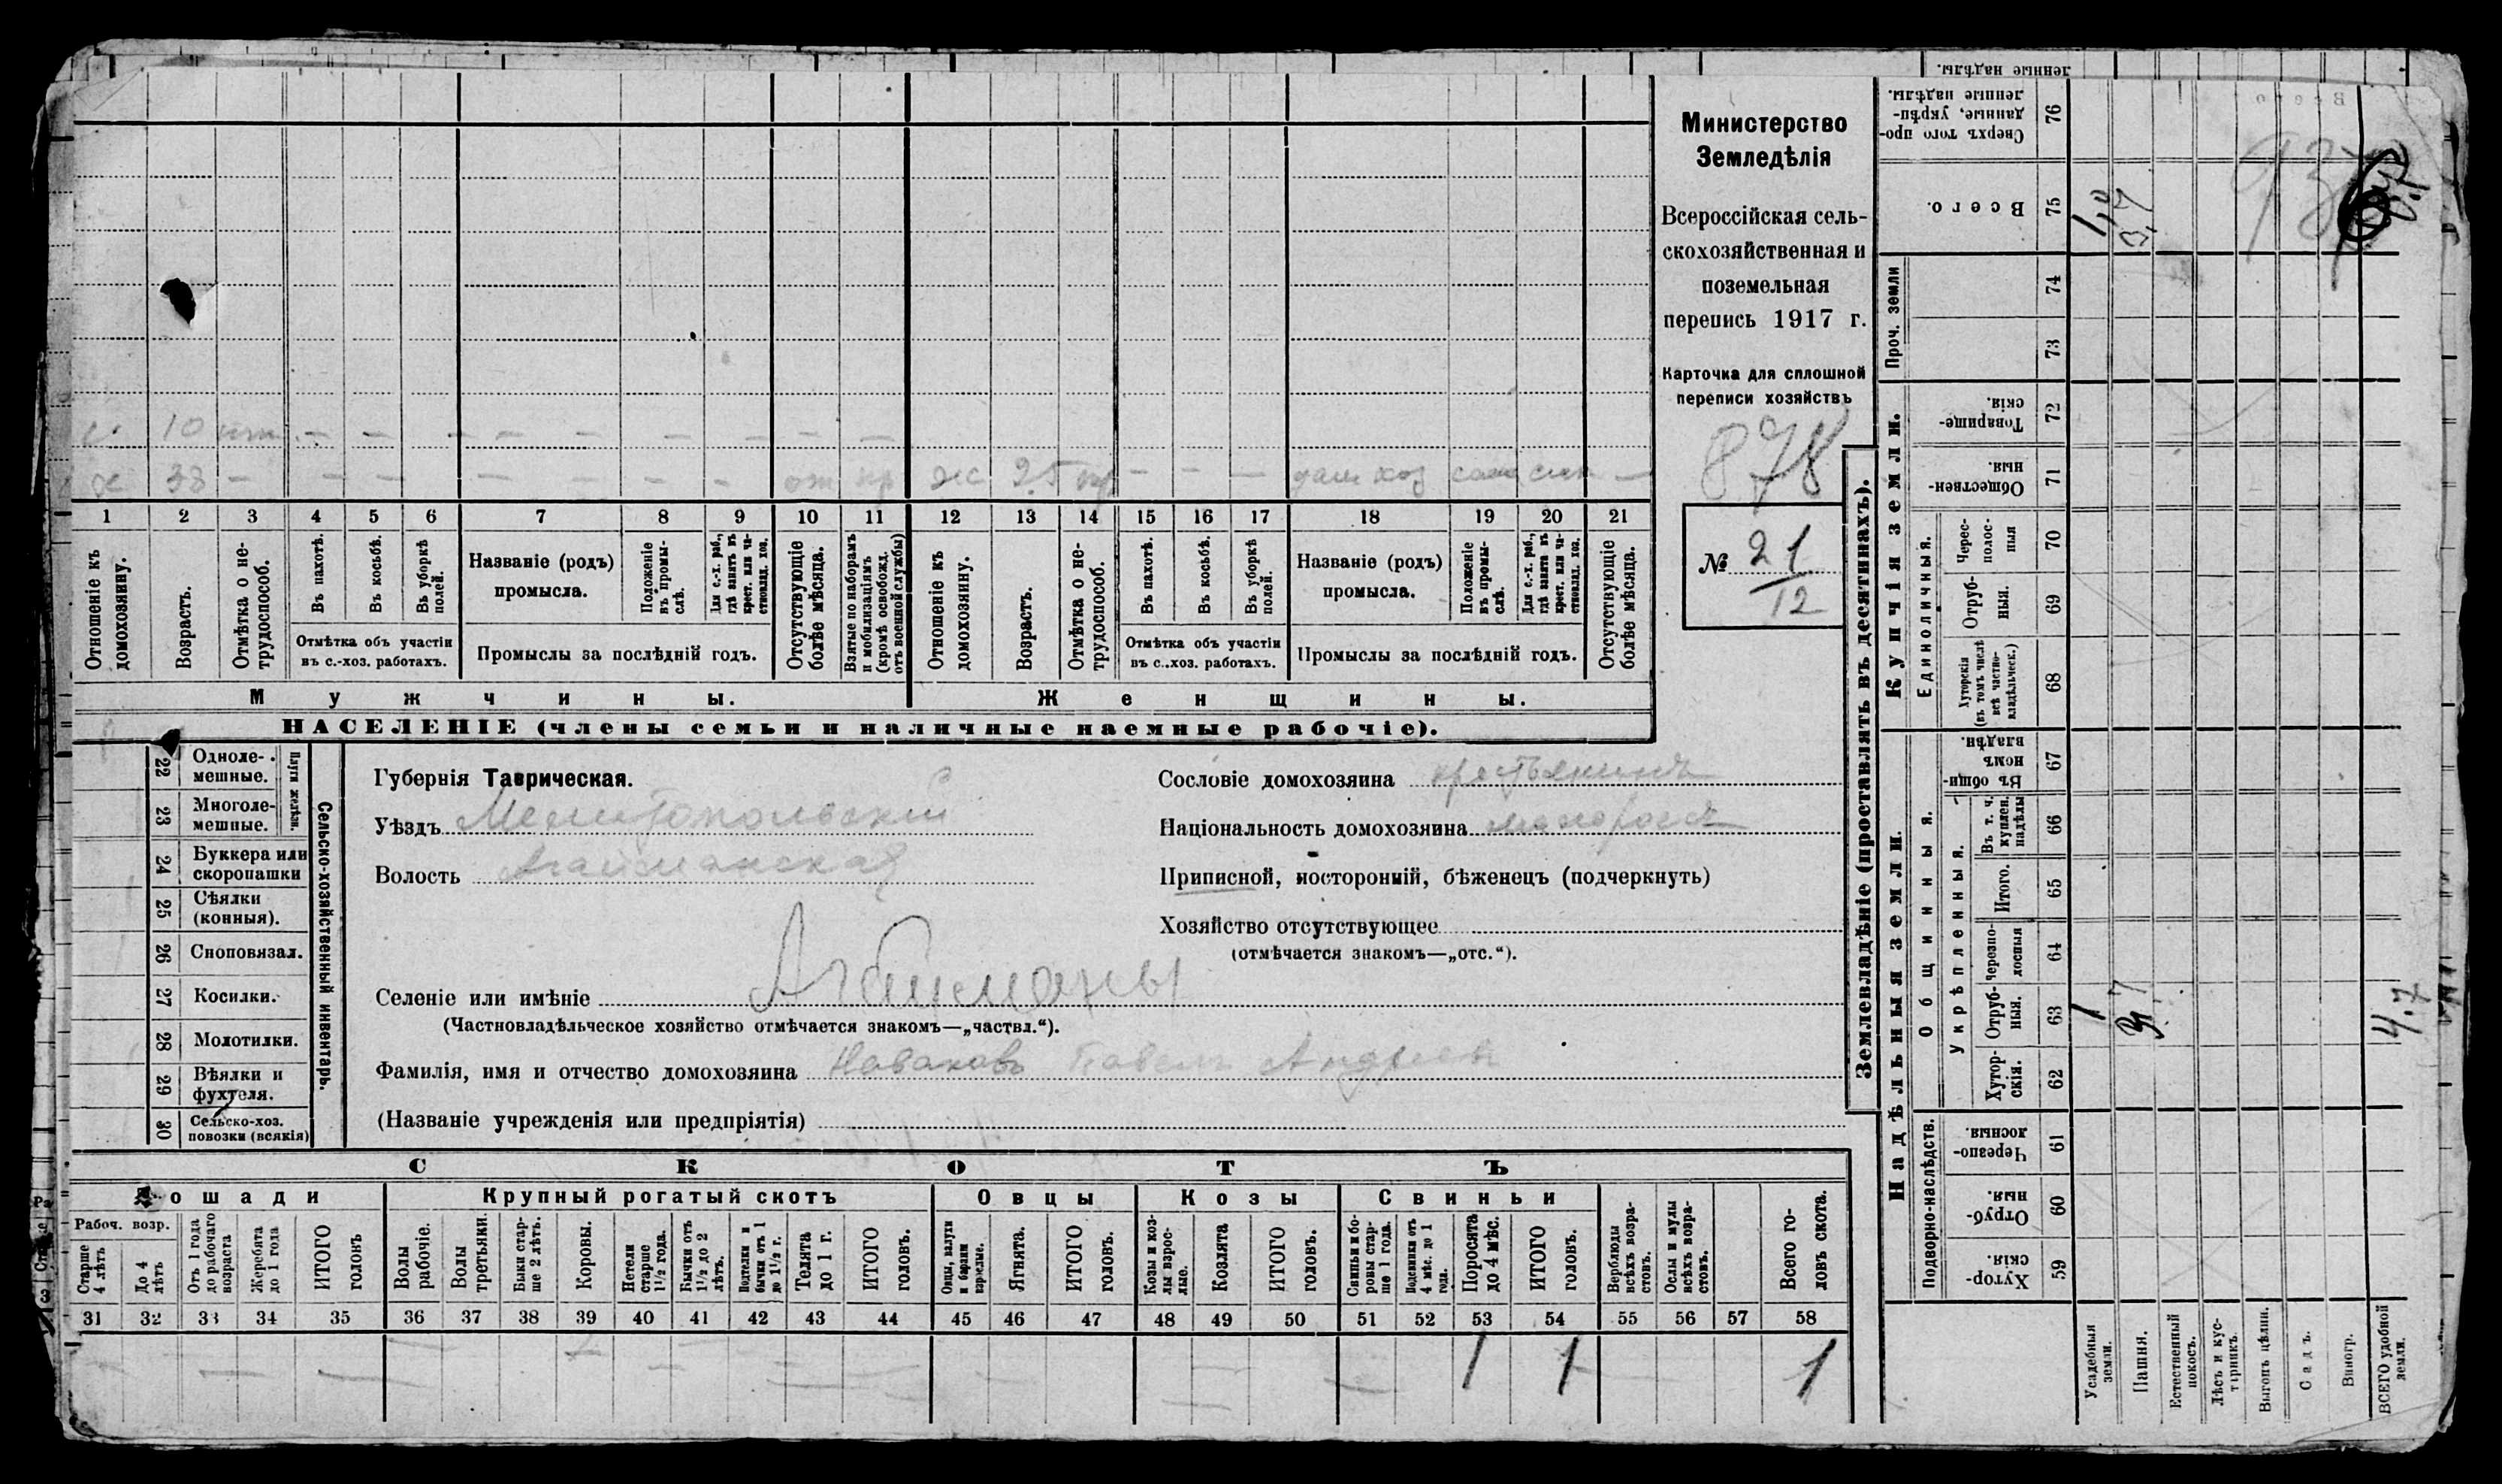 Министерство
Земледѣлія
Всероссійская сель-
скохозяйственная и
поземельная
перепись 1917 г.
Карточка для сплошной
переписи хозяйствъ
878
№ 21
12
10 — — — — — — — —
х 33 — — — — — — — от пр ж 25 — — — сам —
1 2 3 4 5 6 7 8 9 10 11 12 13 14 15 16 17 18 19 20 21
Отношеніе къ домохозяину.
Возрастъ.
Отмѣтка о не-трудоспособ.
Въ пахотѣ.
Въ косьбѣ.
Въ уборкѣ полей.
Отмѣтка объ участіи
въ с.-хоз. работахъ.
Названіе (родъ)
промысла.
Положеніе въ промы-слѣ.
Для с.-х. раб., гдѣ занятъ въ крест. или ча-стновлад. хоз.
Промыслы за послѣдній годъ.
Отсутствующіе болѣе мѣсяца.
Взятые по наборамъ и мобилизаціямъ (кромѣ освобожд. отъ военной службы)
Отношеніе къ домохозяину.
Возрастъ.
Отмѣтка о не-трудоспособ.
Въ пахотѣ.
Въ косьбѣ.
Въ уборкѣ полей.
Отмѣтка объ участіи
въ с.-хоз. работахъ.
Названіе (родъ)
промысла.
Положеніе въ промы-слѣ.
Для с.-х. раб., гдѣ занята въ крест. или ча-стновлад. хоз.
Промыслы за послѣдній годъ.
Отсутствующіе болѣе мѣсяца.
Мужчины.
Женщины.
НАСЕЛЕНІЕ (члены семьи и наличные наемные рабочіе).
Сельско-хозяйственный инвентарь.
Плуги желѣзн.
22 Одноле-мешные.
23 Многоле-мешные.
24 Буккера или скоропашки
25 Сѣялки (конныя).
26 Сноповязал.
27 Косилки.
28 Молотилки.
29 Вѣялки и фухтеля.
30 Сельско-хоз. повозки (всякія)
Губернія Таврическая.
Уѣздъ Мелитопольскій
Волость Агайманская
Селеніе или имѣніе Агайманы
(Частновладѣльческое хозяйство отмѣчается знакомъ—„частвл.“).
Фамилія, имя и отчество домохозяина Новаковъ Павелъ Андреевъ
(Названіе учрежденія или предпріятія)
Сословіе домохозяина крестьянинъ
Національность домохозяина малороссъ
Приписной, посторонній, бѣженецъ (подчеркнуть)
Хозяйство отсутствующее
(отмѣчается знакомъ—„отс.“).
СКОТЪ
Лошади
Крупный рогатый скотъ
Овцы
Козы
Свиньи
Рабоч. возр.
Старше 4 лѣтъ
До 4 лѣтъ
Отъ 1 года до рабочаго возраста
Жеребята до 1 года
ИТОГО головъ
Волы рабочіе.
Волы третьяки.
Быки стар-ше 2 лѣтъ.
Коровы.
Нетели старше 1½ года.
Бычки отъ 1½ до 2 лѣтъ.
Подтелки и бычки отъ 1 до 1½ г.
Телята до 1 г.
ИТОГО головъ.
Овцы, валухи и бараны взрослые.
Ягнята.
ИТОГО головъ.
Козы и коз-лы взрос-лые.
Козлята
ИТОГО головъ.
Свиньи и бо-ровы стар-ше 1 года.
Подсвинки отъ 4 мѣс. до 1 года.
Поросята до 4 мѣс.
ИТОГО головъ.
Верблюды всѣхъ возра-стовъ.
Ослы и мулы всѣхъ возра-стовъ.
Всего го-ловъ скота.
31 32 33 34 35 36 37 38 39 40 41 42 43 44 45 46 47 48 49 50 51 52 53 54 55 56 57 58
1 1 1
Землевладѣніе (проставлять въ десятинахъ).
Надѣльныя земли.
Купчія земли.
Проч. земли
Подворно-наслѣдств.
Общинныя.
Укрѣпленныя.
Единоличныя.
Хутор-скія. 59
Отруб-ныя. 60
Черезпо-лосныя. 61
Хутор-скія. 62
Отруб-ныя. 63
Черезпо-лосныя 64
Итого. 65
Въ т. ч. куплен. надѣлы 66
Въ общин-номъ владѣн. 67
Хуторскія (въ томъ числѣ всѣ частно-владѣльческ.) 68
Отруб-ныя. 69
Черес-полос-ныя 70
Обществен-ныя. 71
Товарище-скія. 72
73
74
Всего. 75
Сверхъ того про-данные, укрѣп-ленные надѣлы. 76
ленные надѣлы.
Усадебныя земли. 1 1,0
Пашня. 3,7 3,7
Естественный покосъ.
Лѣсъ и кус-тарникъ.
Выгонъ цѣлин.
Садъ.
Виногр.
ВСЕГО удобной земли. 4.7
937